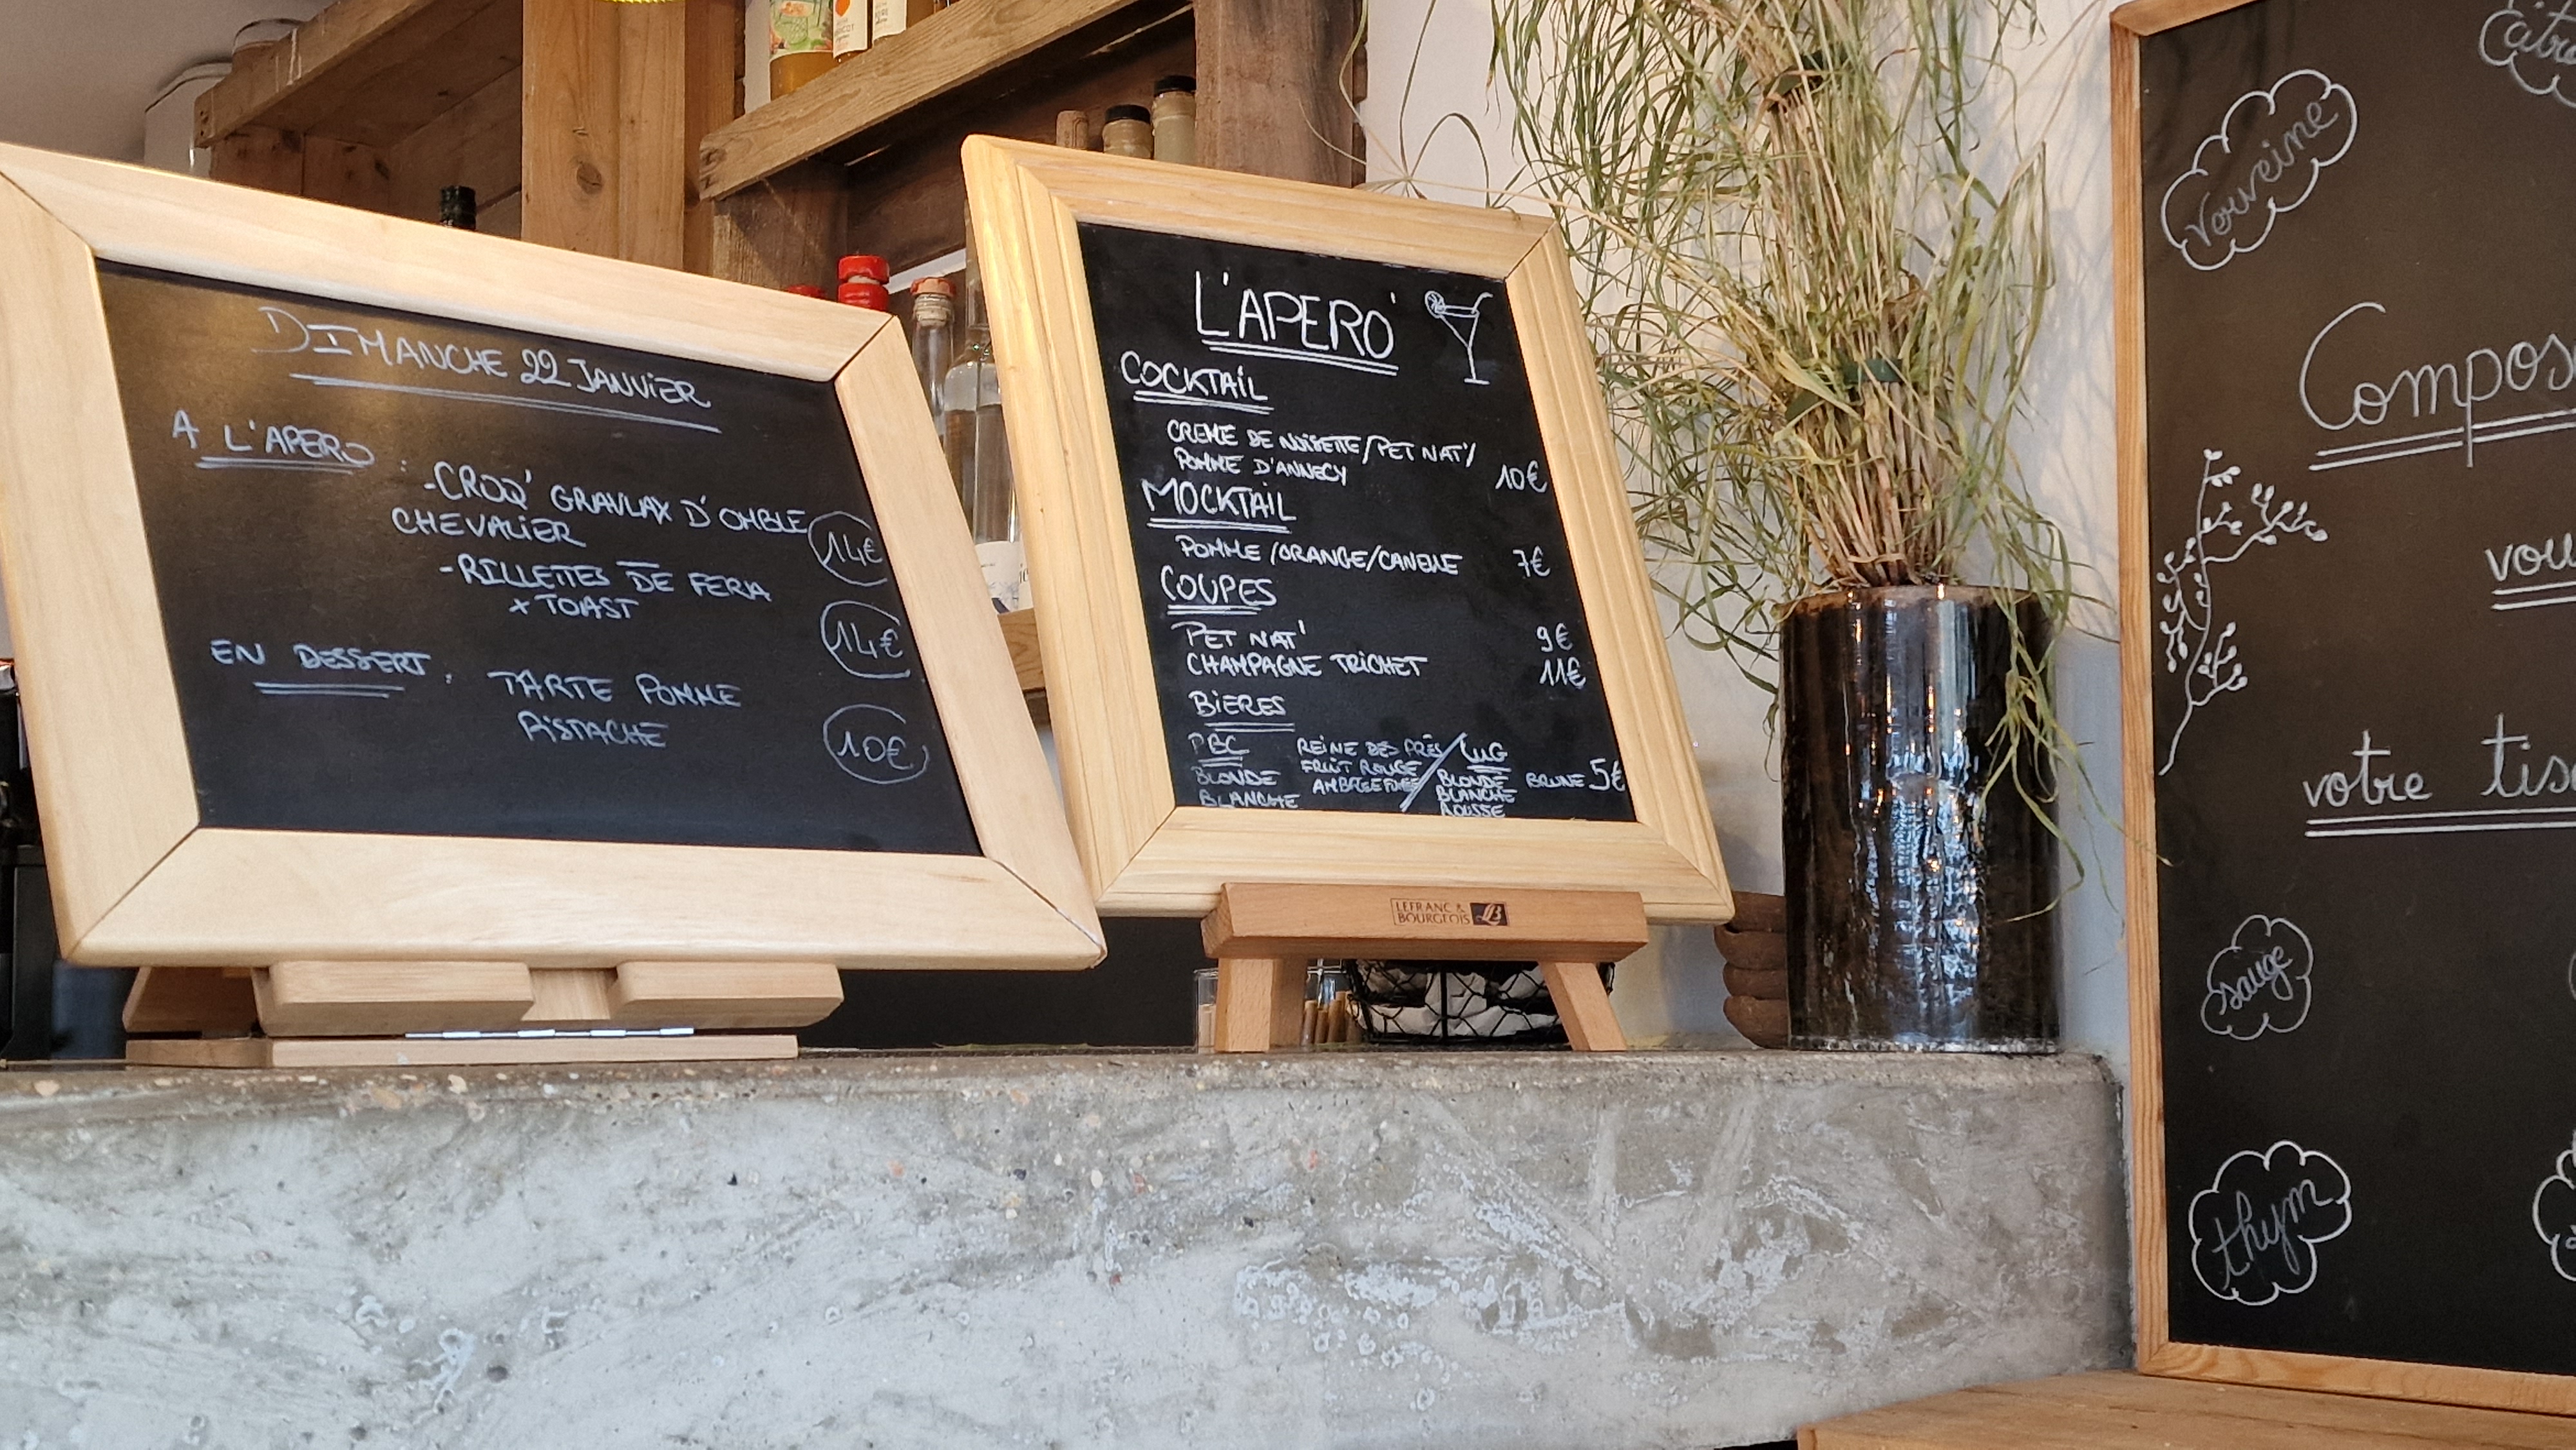 DIMANCHE 22 JANVIER
A L'APERO :
-CROQ' GRAVLAX D'OMBLE
CHEVALIER
14€
-RILLETTES DE FERA
+ TOAST
14€
EN DESSERT :
TARTE POMME
PISTACHE
10€
L'APERO'
COCKTAIL
CREME DE NOISETTE/PET NAT'/
POMME D'ANNECY 10€
MOCKTAIL
POMME/ORANGE/CANELLE 7€
COUPES
PET NAT' 9€
CHAMPAGNE TRICHET 11€
BIERES
PBC REINE DES PRÈS
BLONDE FRUIT ROUGE
BLANCHE AMBREE FUMEE
BLONDE BRUNE 5€
BLANCHE
ROUSSE
LEFRANC &
BOURGEOIS LB
verveine
Compos
vou
votre tis
sauge
thym